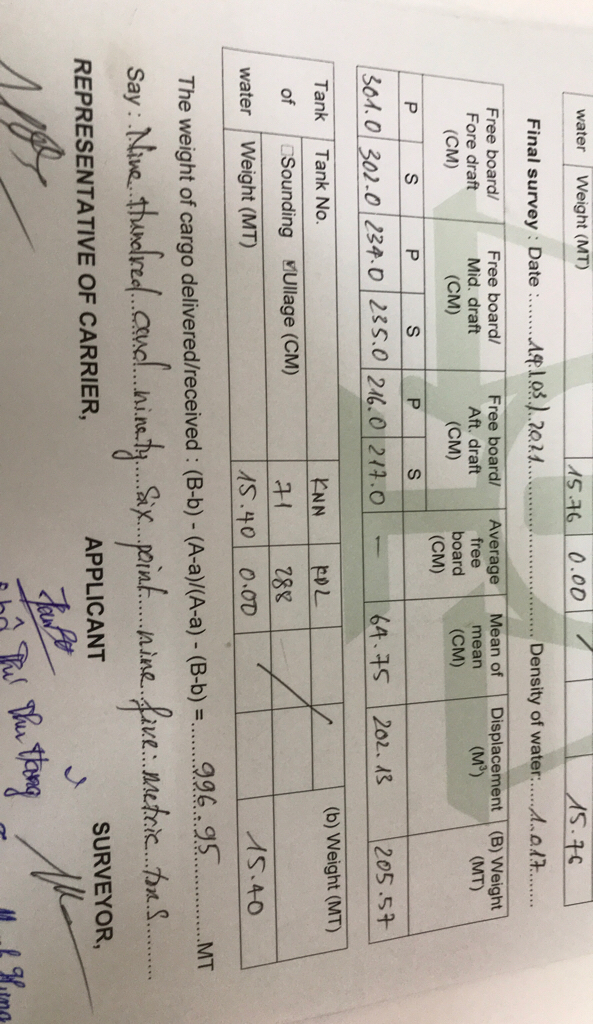 water Weight (MT) 15.76 0.00 15.76
Final survey : Date : 19/03/2021 Density of water: 1.017
Free board/ Fore draft (CM) Free board/ Mid. draft (CM) Free board/ Aft. draft (CM) Average free board (CM) Mean of mean (CM) Displacement (M³) (B) Weight (MT)
P S P S P S
301.0 302.0 234.0 235.0 216.0 217.0 — 64.75 202.13 205.57
Tank Tank No. KNN KDL (b) Weight (MT)
of □Sounding ☑Ullage (CM) 71 288
water Weight (MT) 15.40 0.00 15.40
The weight of cargo delivered/received : (B-b) - (A-a)/(A-a) - (B-b) = 996.95 MT
Say : Nine Hundred and ninety six point nine five metric tons
REPRESENTATIVE OF CARRIER, APPLICANT SURVEYOR,
Thị Thu Hằng